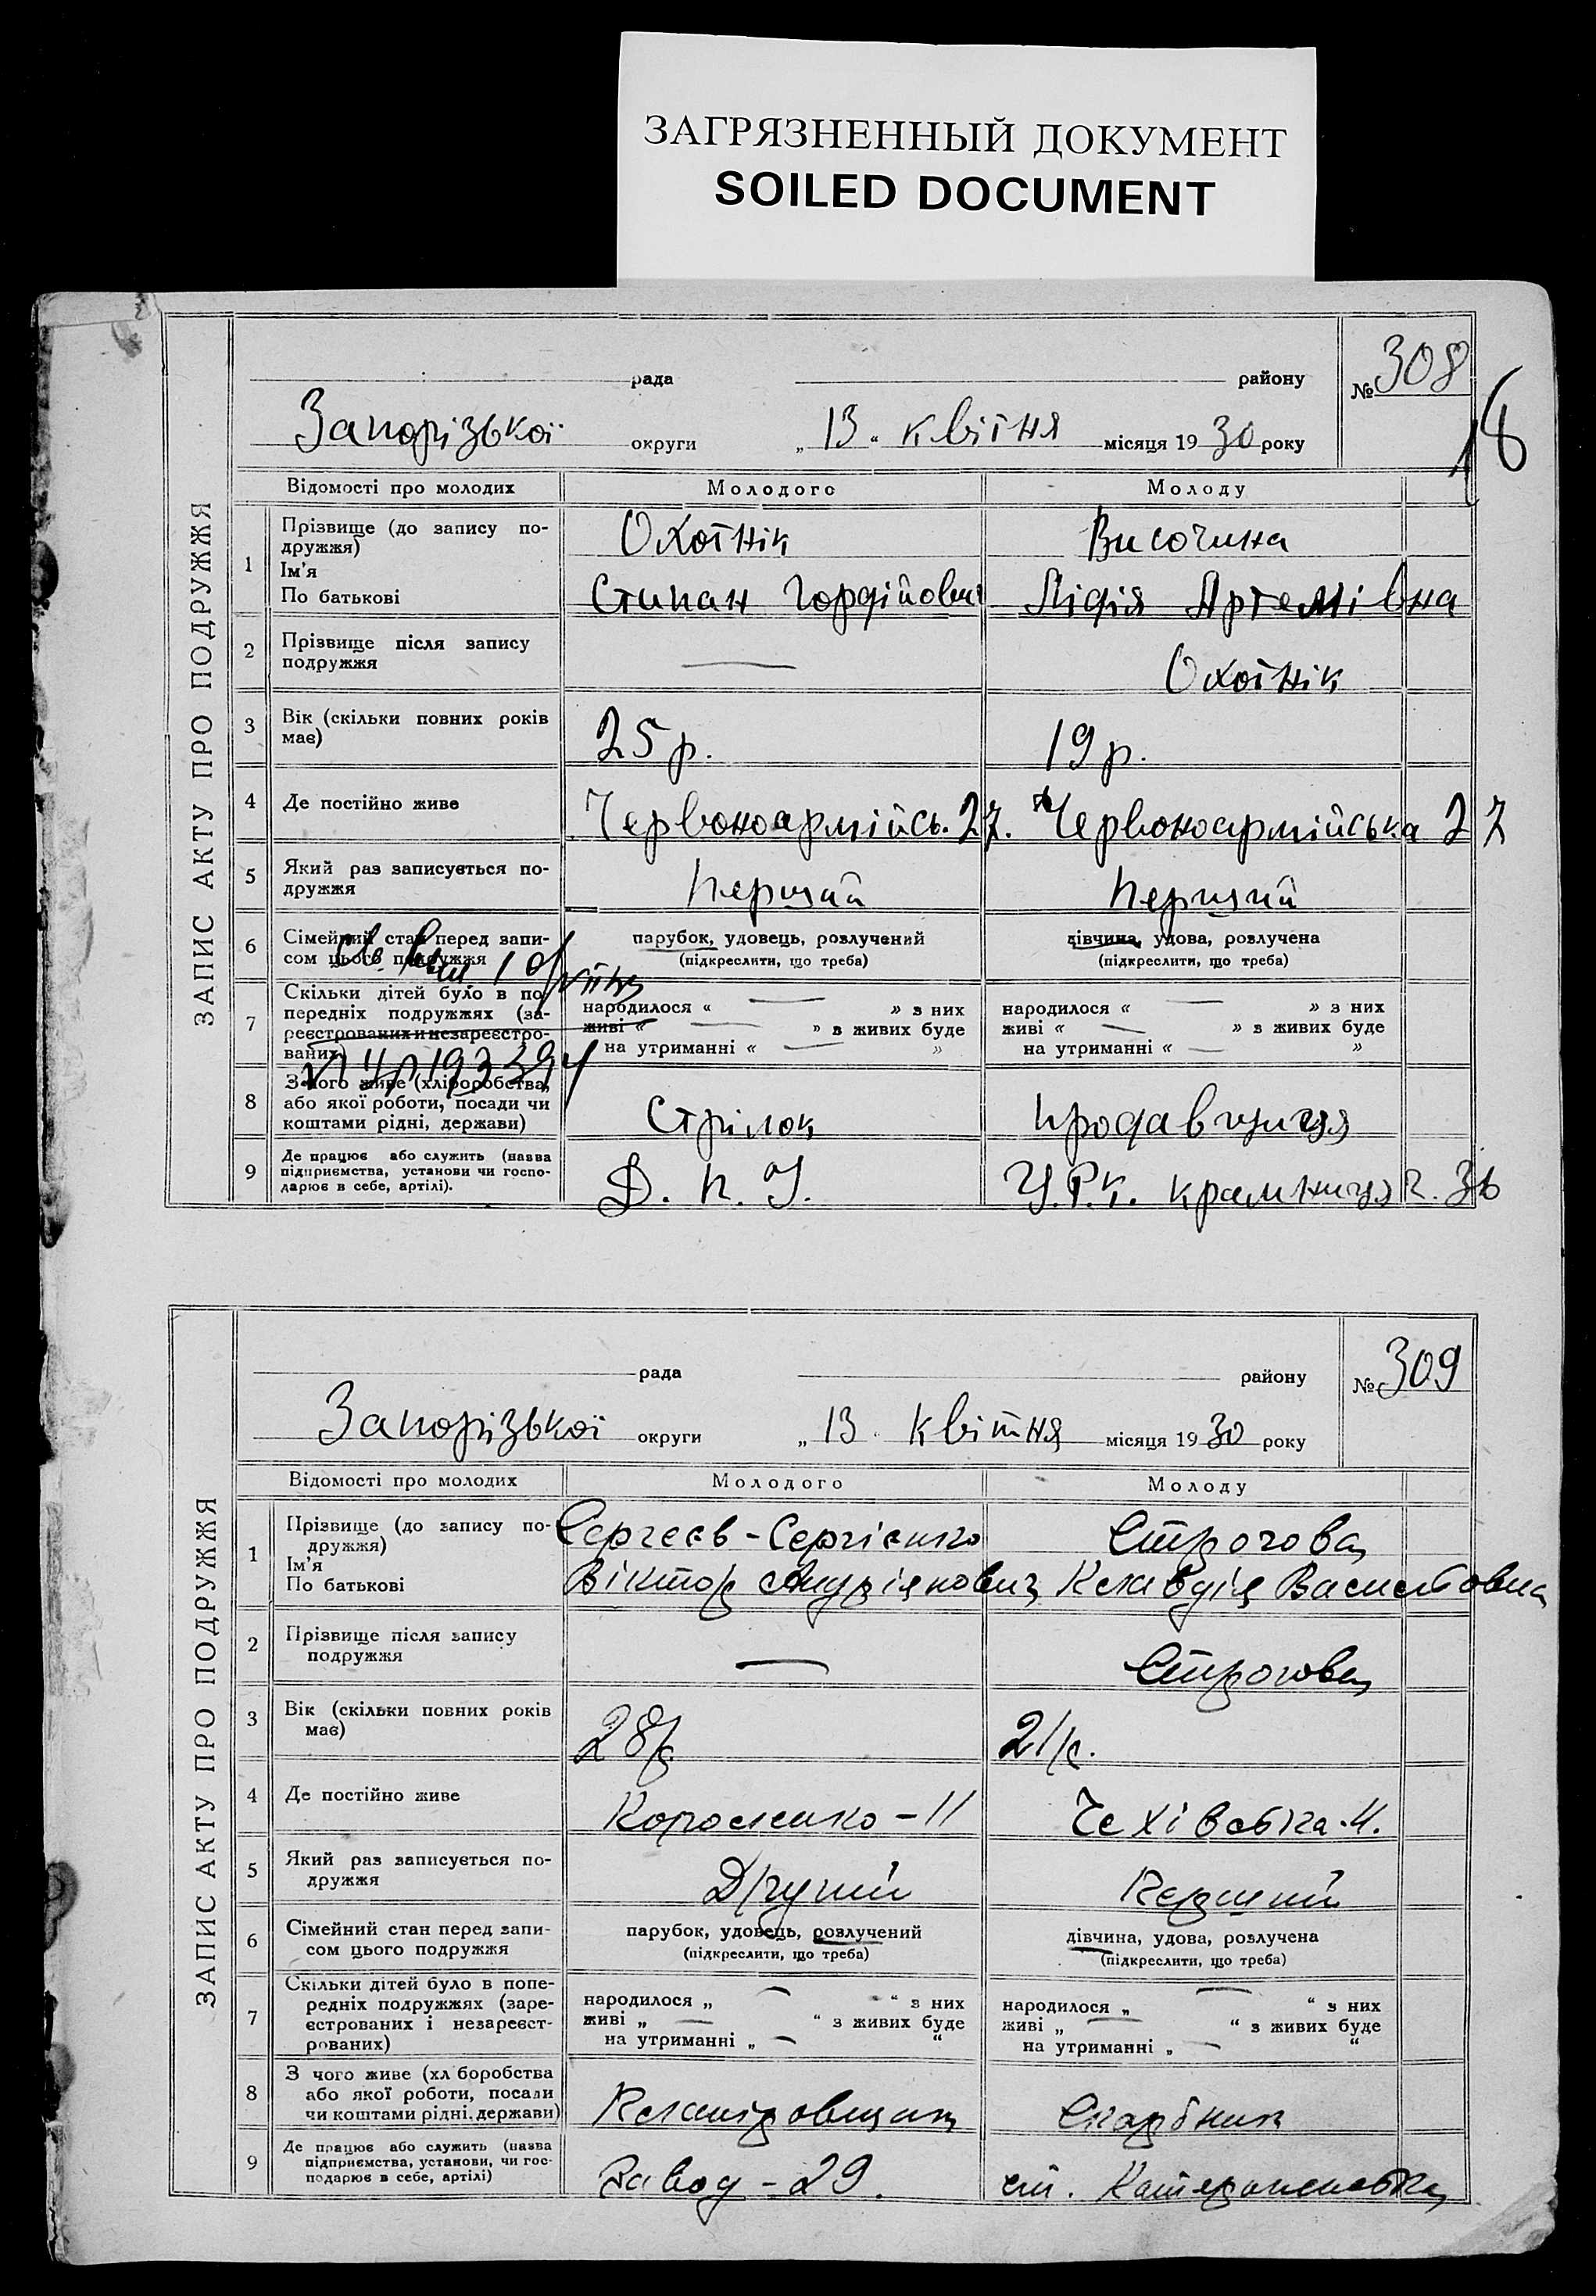 ЗАГРЯЗНЕННЫЙ ДОКУМЕНТ
SOILED DOCUMENT
ЗАПИС АКТУ ПРО ПОДРУЖЖЯ
рада району № 308
Запорізької округи „13“ квітня місяця 1930 року
Відомості про молодих Молодого Молоду
1 Прізвище (до запису по-
дружжя)
Ім'я
По батькові
Охотнік Височина
Стипан Гордійович Лідія Артемівна
2 Прізвище після запису
подружжя
— Охотнік
3 Вік (скільки повних років
має)
25 р. 19 р.
4 Де постійно живе Червоноармійсь. 27. Червоноармійська 27
5 Який раз записується по-
дружжя
Перший Перший
6 Сімейний стан перед запи-
сом цього подружжя
парубок, удовець, розлучений дівчина, удова, розлучена
(підкреслити, що треба) (підкреслити, що треба)
7 Скільки дітей було в по-
передніх подружжях (за-
реєстрованих и незареєстро-
ваних)
народилося « — » з них народилося « — » з них
живі « — » з живих буде живі « — » з живих буде
на утриманні « — » на утриманні « — »
8 З чого живе (хліборобства,
або якої роботи, посади чи
коштами рідні, держави)
Стрілок продавщиця
9 Де працює або служить (назва
підприємства, установи чи госпо-
дарює в себе, артілі).
Д. П. У. Ц.Р.К. крамниця
ЗАПИС АКТУ ПРО ПОДРУЖЖЯ
рада району № 309
Запорізької округи „13 квітня місяця 1930 року
Відомості про молодих Молодого Молоду
1 Прізвище (до запису по-
дружжя)
Ім'я
По батькові
Сергеєв-Сергієнко Строгова
Віктор Андріянович Клавдія
2 Прізвище після запису
подружжя
— Строгова
3 Вік (скільки повних років
має)
28 р 21 р.
4 Де постійно живе Короленко - 11
5 Який раз записується по-
дружжя
Другий Перший
6 Сімейний стан перед запи-
сом цього подружжя
парубок, удовець, розлучений дівчина, удова, розлучена
(підкреслити, що треба) (підкреслити, що треба)
7 Скільки дітей було в попе-
редніх подружжях (заре-
єстрованих і незареєст-
рованих)
народилося „ — “ з них народилося „ — “ з них
живі „ — “ з живих буде живі „ — “ з живих буде
на утриманні „ — “ на утриманні „ — “
8 З чого живе (хл боробства
або якої роботи, посади
чи коштами рідні, держави)
Планіровщик Скарбник
9 Де працює або служить (назва
підприємства, установи, чи гос-
подарює в себе, артілі)
Завод - 29. ст.